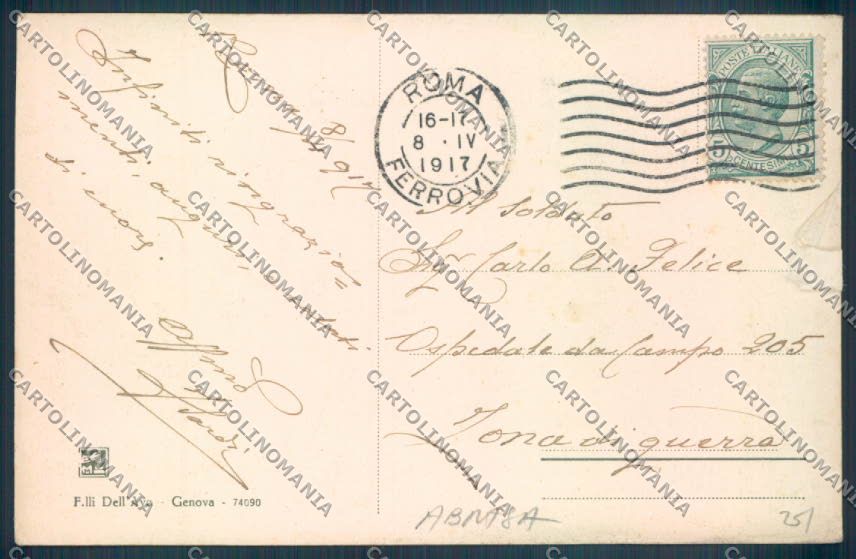 Roma 8/4 917
Infiniti ringrazia=
menti, auguri, saluti
di cuore.
Affmo
F.lli Dell'Avo - Genova - 74090
ROMA
16-17
8 · IV
1917
FERROVIA
POSTE ITALIANE
5 CENTESIMI 5
Al Soldato
Sig. Carlo De Felice
Ospedale da Campo 205
Zona di guerra
251
CARTOLINOMANIA